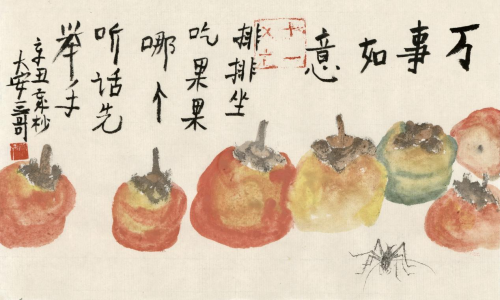 万事如意
排排坐
吃果果
哪个
听话先
举手
辛丑
大安三哥